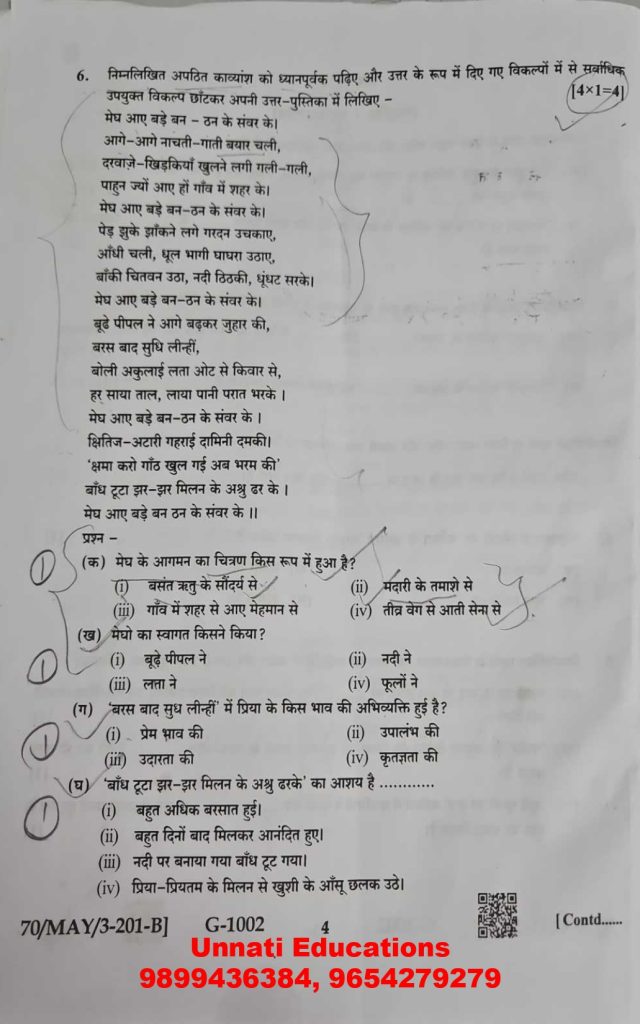 6. निम्नलिखित अपठित काव्यांश को ध्यानपूर्वक पढ़िए और उत्तर के रूप में दिए गए विकल्पों में से सर्वाधिक
उपयुक्त विकल्प छाँटकर अपनी उत्तर-पुस्तिका में लिखिए – [4×1=4]
मेघ आए बड़े बन – ठन के संवर के।
आगे-आगे नाचती-गाती बयार चली,
दरवाज़े-खिड़कियाँ खुलने लगी गली-गली,
पाहुन ज्यों आए हों गाँव में शहर के।
मेघ आए बड़े बन-ठन के संवर के।
पेड़ झुके झाँकने लगे गरदन उचकाए,
आँधी चली, धूल भागी घाघरा उठाए,
बाँकी चितवन उठा, नदी ठिठकी, धूंघट सरके।
मेघ आए बड़े बन-ठन के संवर के।
बूढे पीपल ने आगे बढ़कर जुहार की,
बरस बाद सुधि लीन्हीं,
बोली अकुलाई लता ओट से किवार से,
हर साया ताल, लाया पानी परात भरके ।
मेघ आए बड़े बन-ठन के संवर के ।
क्षितिज-अटारी गहराई दामिनी दमकी।
'क्षमा करो गाँठ खुल गई अब भरम की'
बाँध टूटा झर-झर मिलन के अश्रु ढर के ।
मेघ आए बड़े बन ठन के संवर के ।।
प्रश्न –
(क) मेघ के आगमन का चित्रण किस रूप में हुआ है?
(i) बसंत ऋतु के सौंदर्य से (ii) मदारी के तमाशे से
(iii) गाँव में शहर से आए मेहमान से (iv) तीव्र वेग से आती सेना से
(ख) मेघो का स्वागत किसने किया?
(i) बूढ़े पीपल ने (ii) नदी ने
(iii) लता ने (iv) फूलों ने
(ग) 'बरस बाद सुध लीन्हीं' में प्रिया के किस भाव की अभिव्यक्ति हुई है?
(i) प्रेम भाव की (ii) उपालंभ की
(iii) उदारता की (iv) कृतज्ञता की
(घ) 'बाँध टूटा झर-झर मिलन के अश्रु ढरके' का आशय है ............
(i) बहुत अधिक बरसात हुई।
(ii) बहुत दिनों बाद मिलकर आनंदित हुए।
(iii) नदी पर बनाया गया बाँध टूट गया।
(iv) प्रिया-प्रियतम के मिलन से खुशी के आँसू छलक उठे।
70/MAY/3-201-B] G-1002 4 [ Contd......
Unnati Educations
9899436384, 9654279279